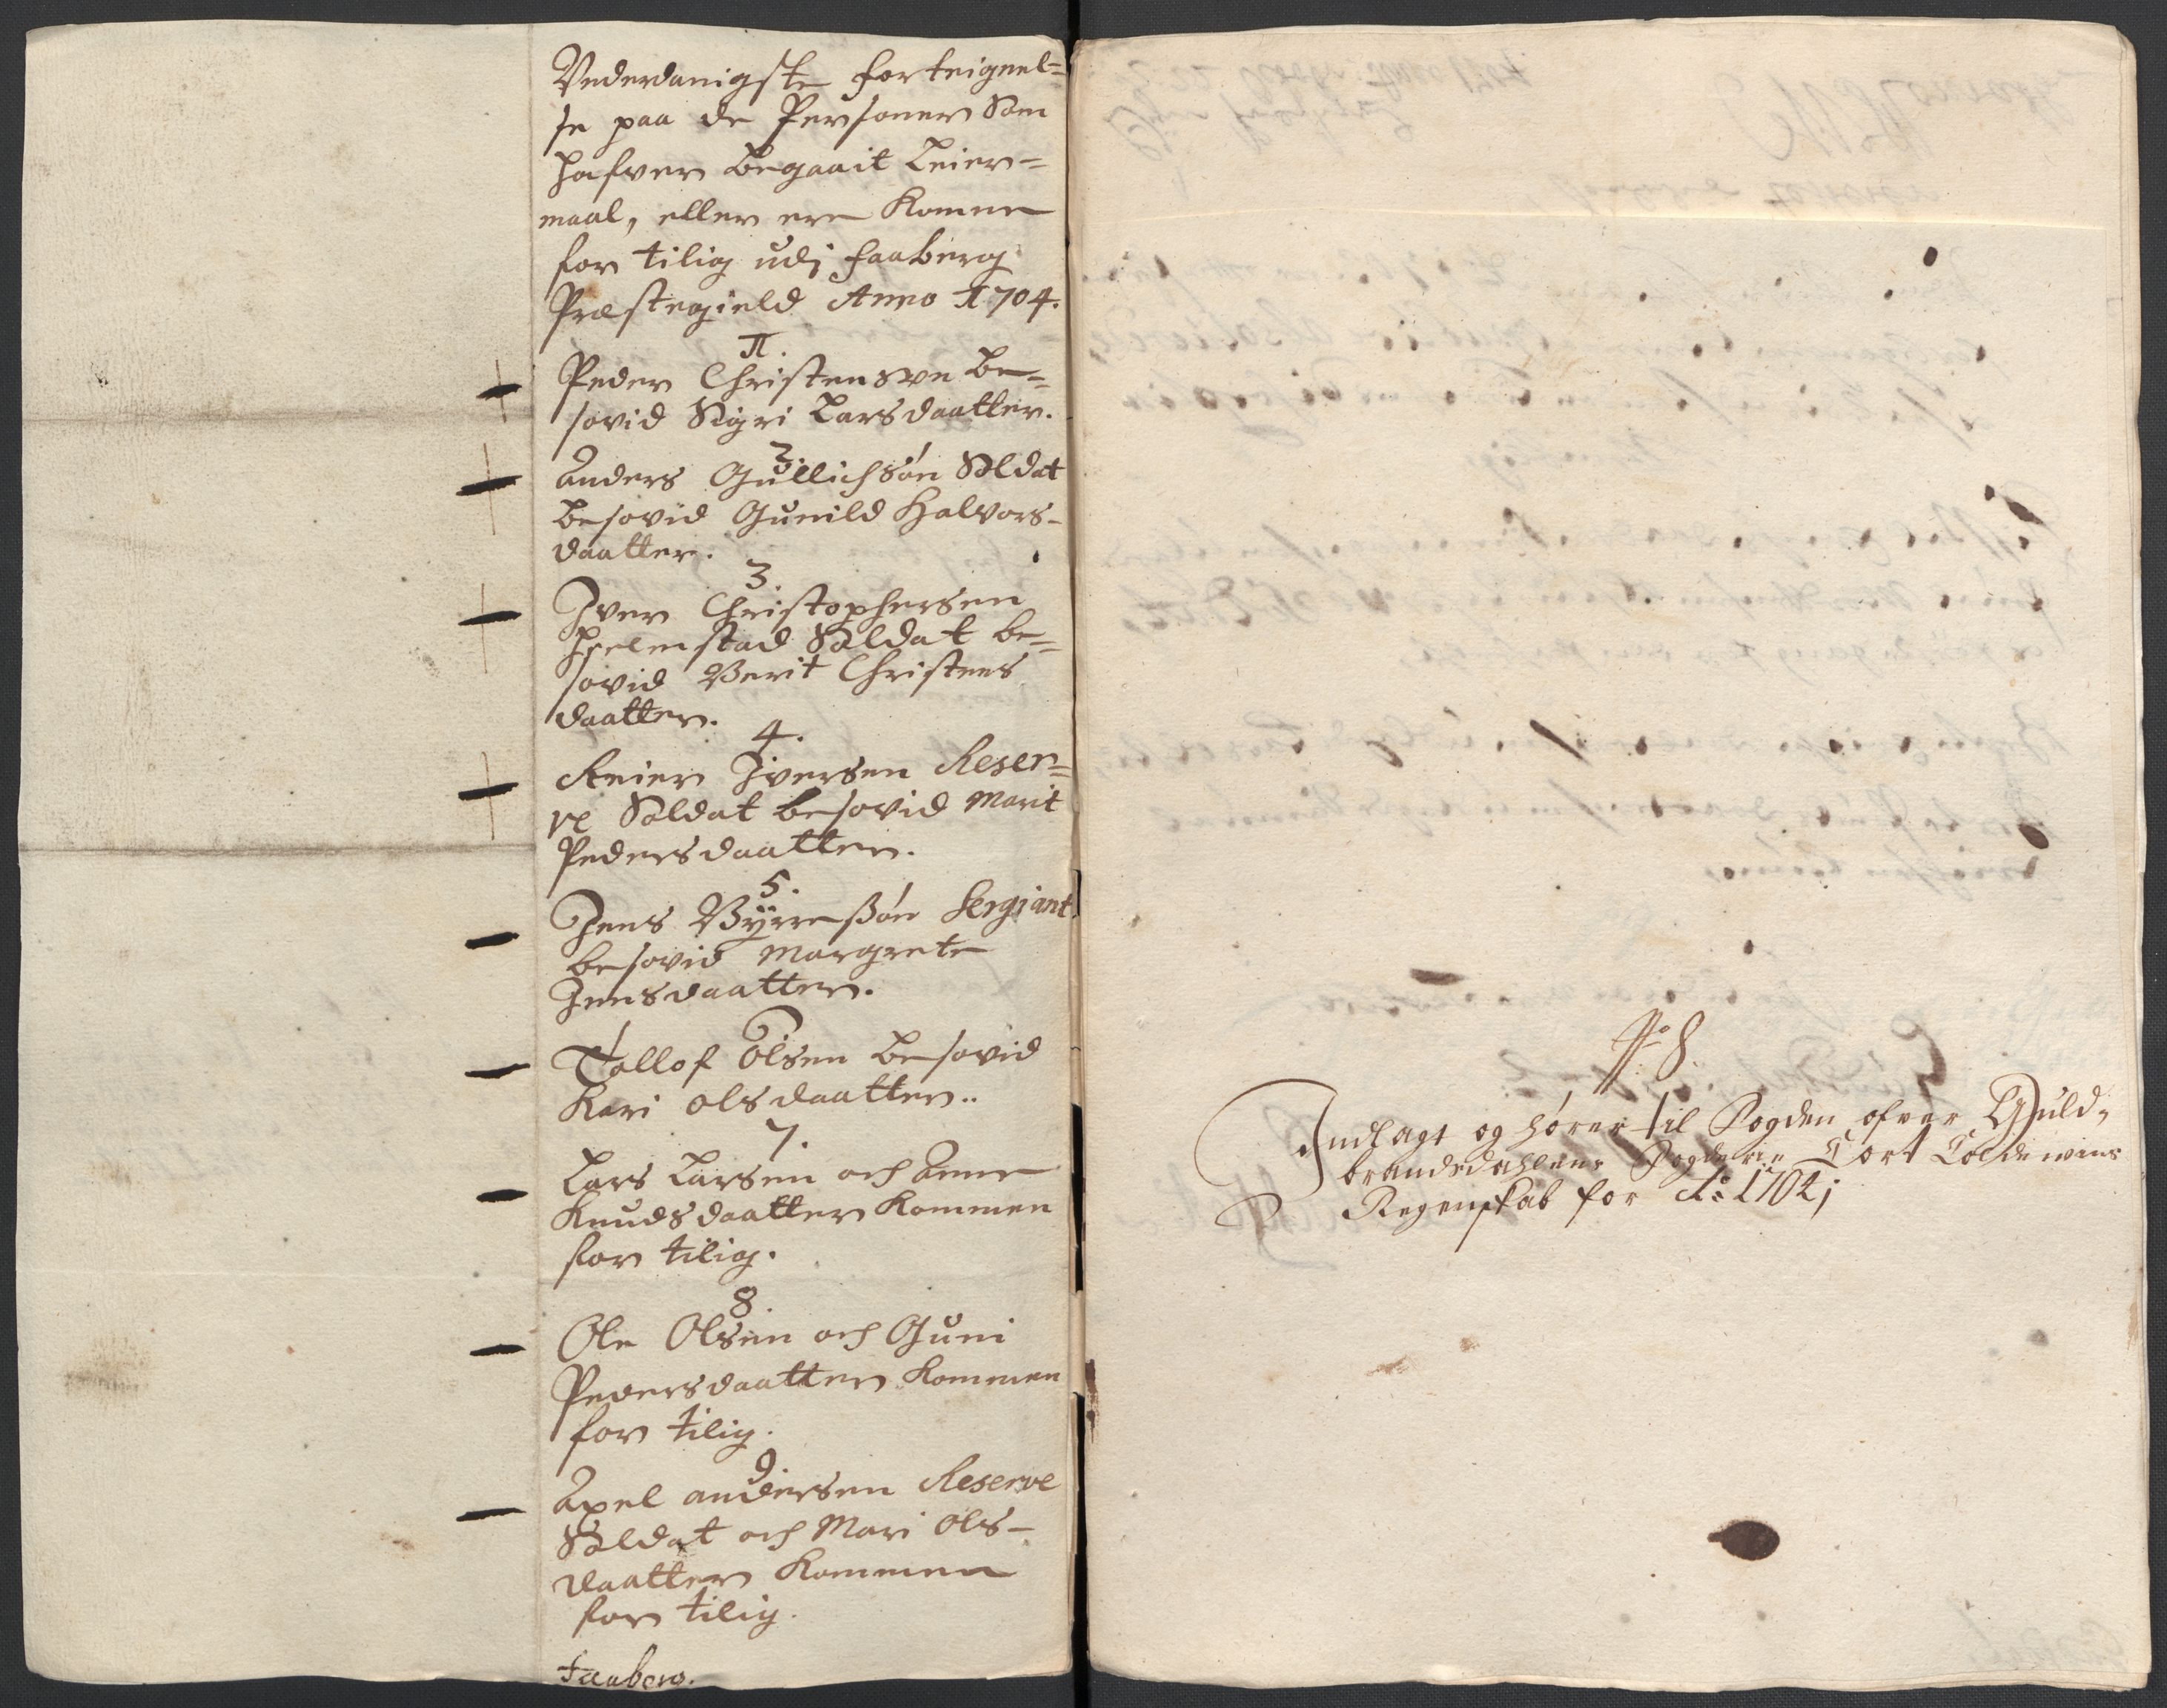 Vnderdanigste forteignel=
se paa de Personer Som
hafver begaait Leier=
maal, eller ere komne
for tilig udj faaberg
Præstegield Anno 1704.
1.
Peder Christensøn be=
sovid Sigri Larsdaatter.
2.
Anders Gullichsøn Soldat
besovid Gunild Halvors-
daatter.
3.
Iver Christophersen
Hielmstad Soldat be=
sovid Berit Christens
daatter.
4.
Reier Iversen Reser=
ve Soldat besovid Marit
Pedersdaatter.
5.
Jens Byrreßøn Sergiant
besovid Margrete
Jensdaatter.
Tollof Olsen besovid
Kari olsdaatter..
7.
Lars Larsen och Anne
Knudsdaatter kommen
for tilig.
8.
Ole Olsen och Guni
Pedersdaatter kommen
for tilig.
9
Axel andersen Reserve
Soldat och Mari ols-
daatter kommen
for tilig.
Faaberg.
No 8.
Indlagt og hører til Fogden ofver Guld,
brandsdahlens Fogderie Cort Coldewins
Regenskab for Ao 1704;